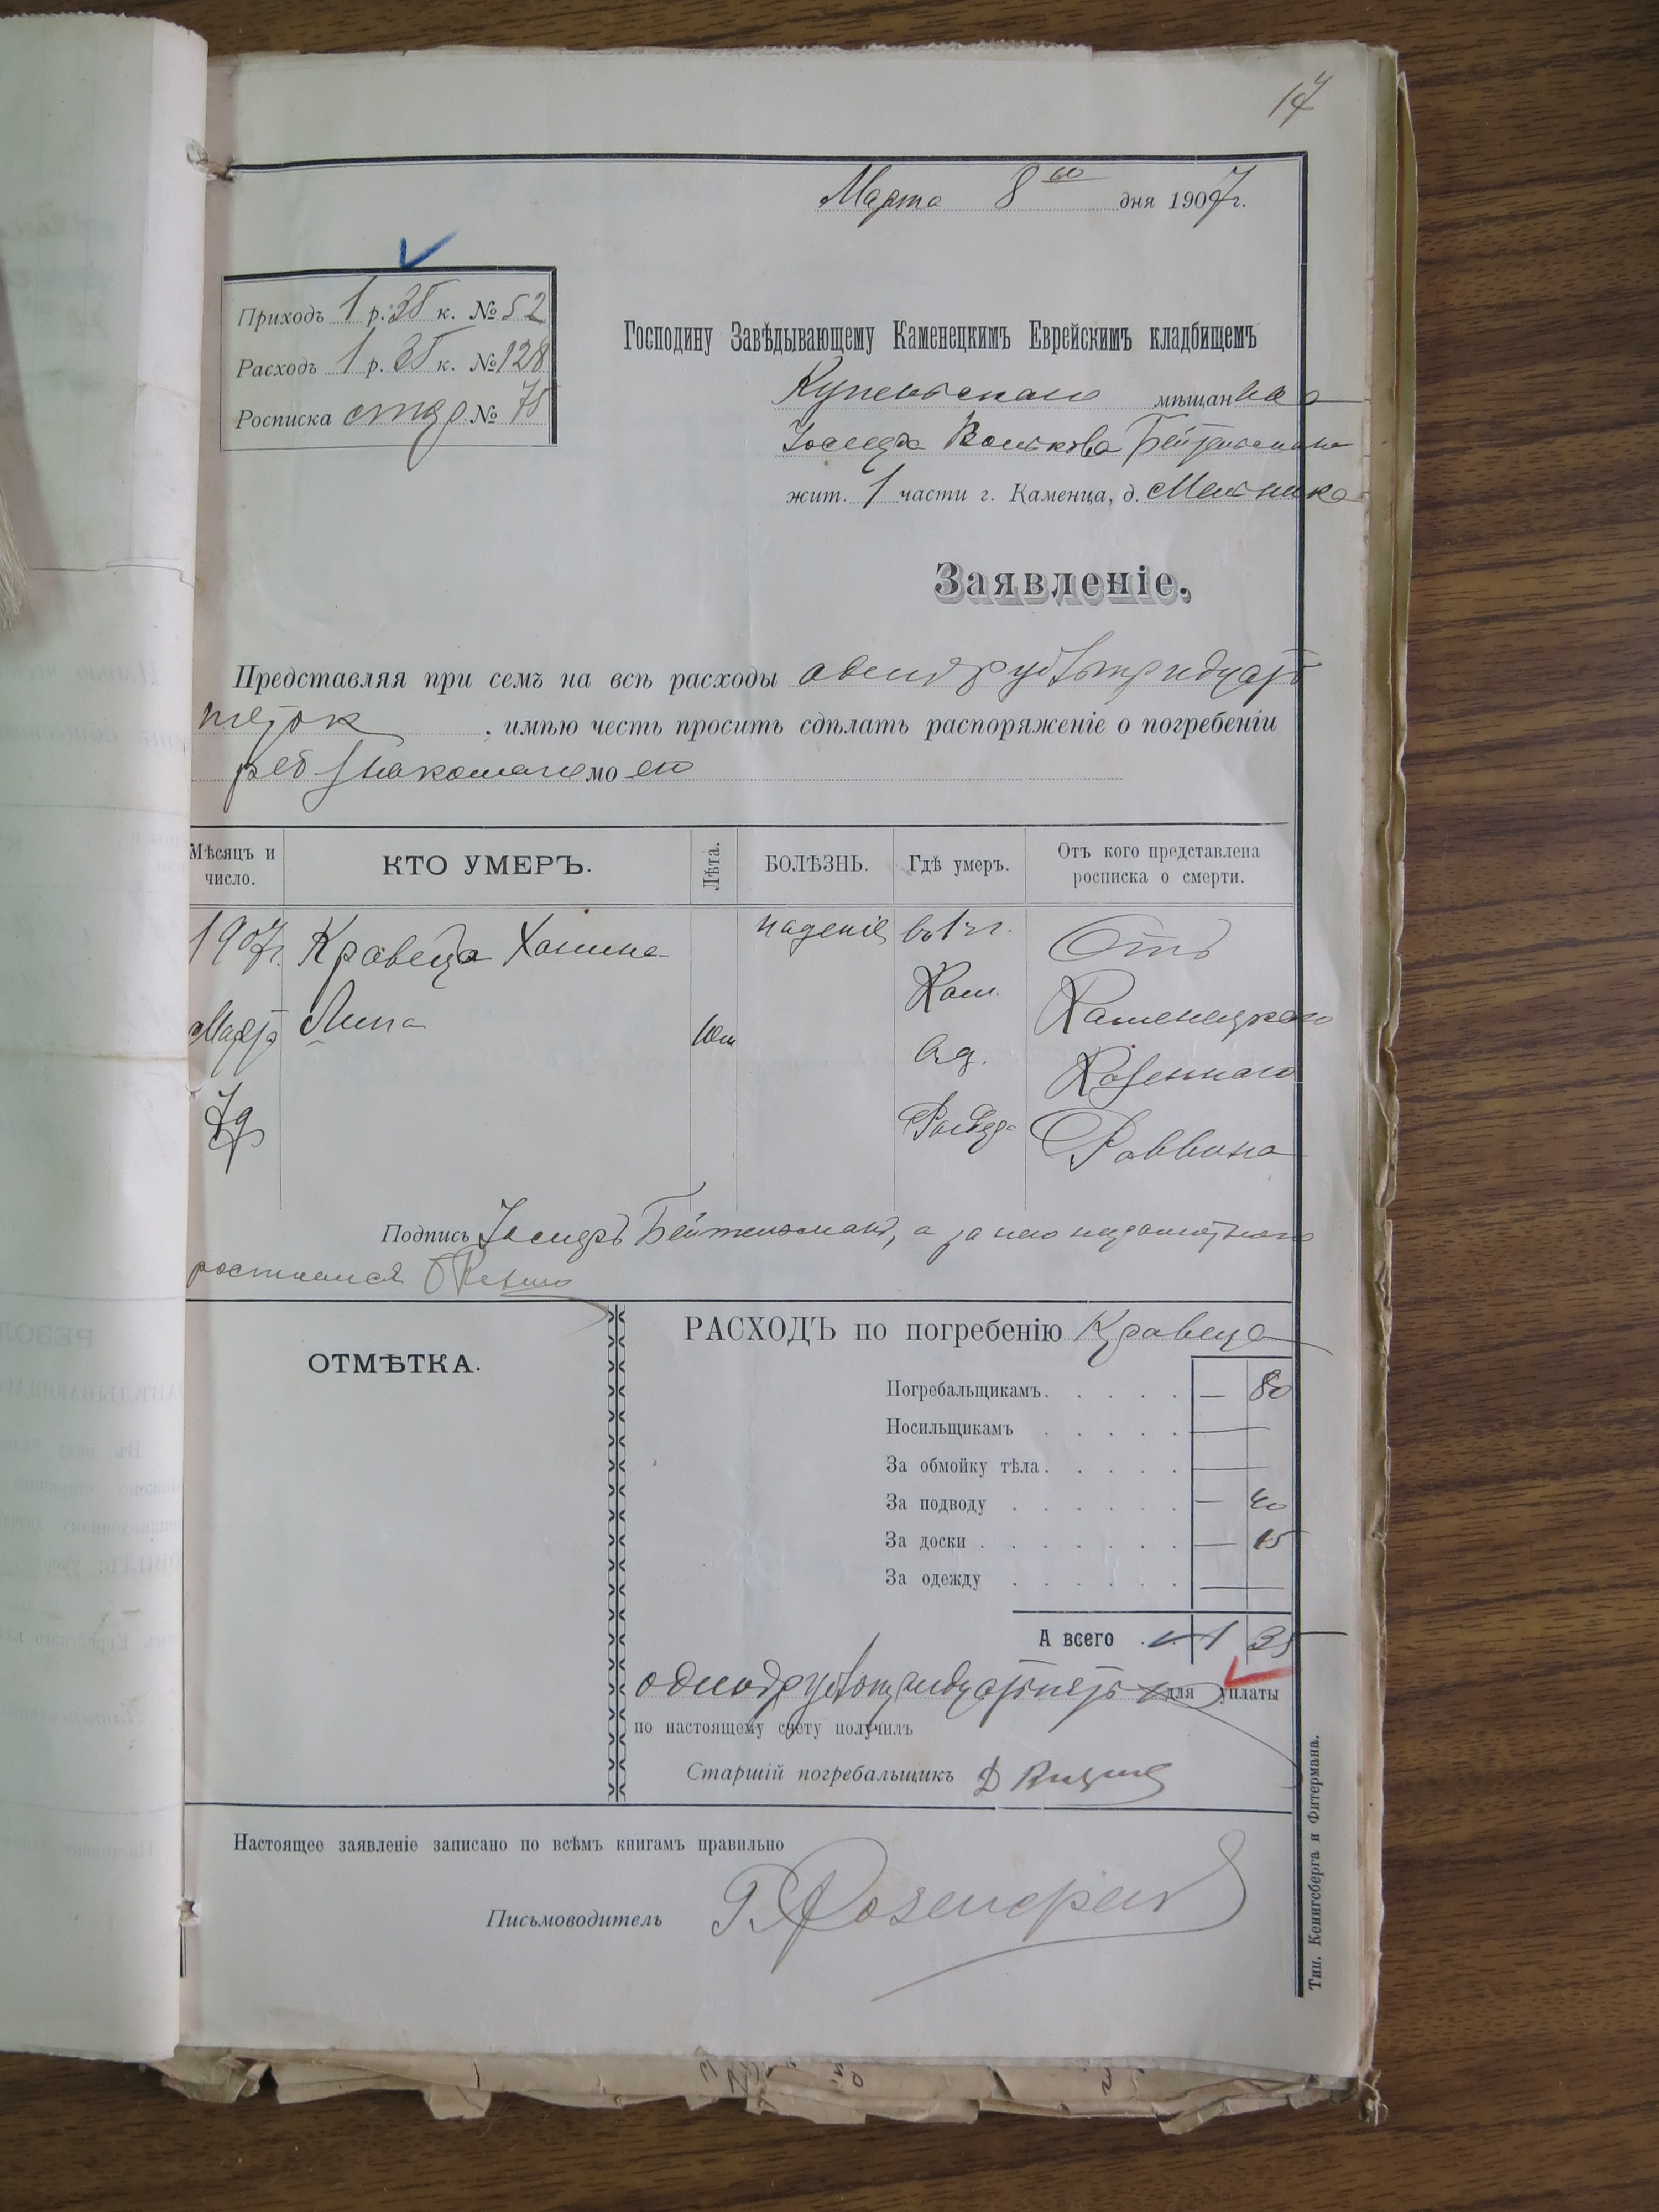 17
Марта 8го дня 1907г.
Приходъ 1 р. 35 к. № 52
Расходъ 1 р. 35 к. № 128
Росписка стар. № 75
Господину Завѣдывающему Каменецкимъ Еврейскимъ кладбищемъ
мѣщанина
Бейтельмана
жит. 1 части г. Каменца, д. Мельника
Заявленіе.
Представляя при семъ на всѣ расходы один рубль тридцать
пять к , имѣю честь просить сдѣлать распоряженіе о погребеніи
реб знакомаго моего
Мѣсяцъ и число. КТО УМЕРЪ. Лѣта. БОЛѢЗНЬ. Гдѣ умеръ. Отъ кого представлена росписка о смерти.
1907г. Кравеца паденіе въ 1 ч г. Отъ
Марта Кам. Каменецкаго
Казеннаго
7д Раввина
Подпись Бейтельманъ, а за него неграмотнаго
росписался
ОТМѢТКА.
РАСХОДЪ по погребенію Кравеца
Погребальщикамъ. — 80
Носильщикамъ —
За обмойку тѣла. —
За подводу — 40
За доски . — 15
За одежду —
А всего 1 35
одинъ рубль тридцать пять к для уплаты
по настоящему счету получилъ
Старшій погребальщикъ Д
Настоящее заявленіе записано по всѣмъ книгамъ правильно
Письмоводитель
Тип. Кенигсберга и Фитермана.